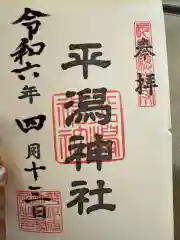 奉拝
平潟神社
令和六年四月十二日